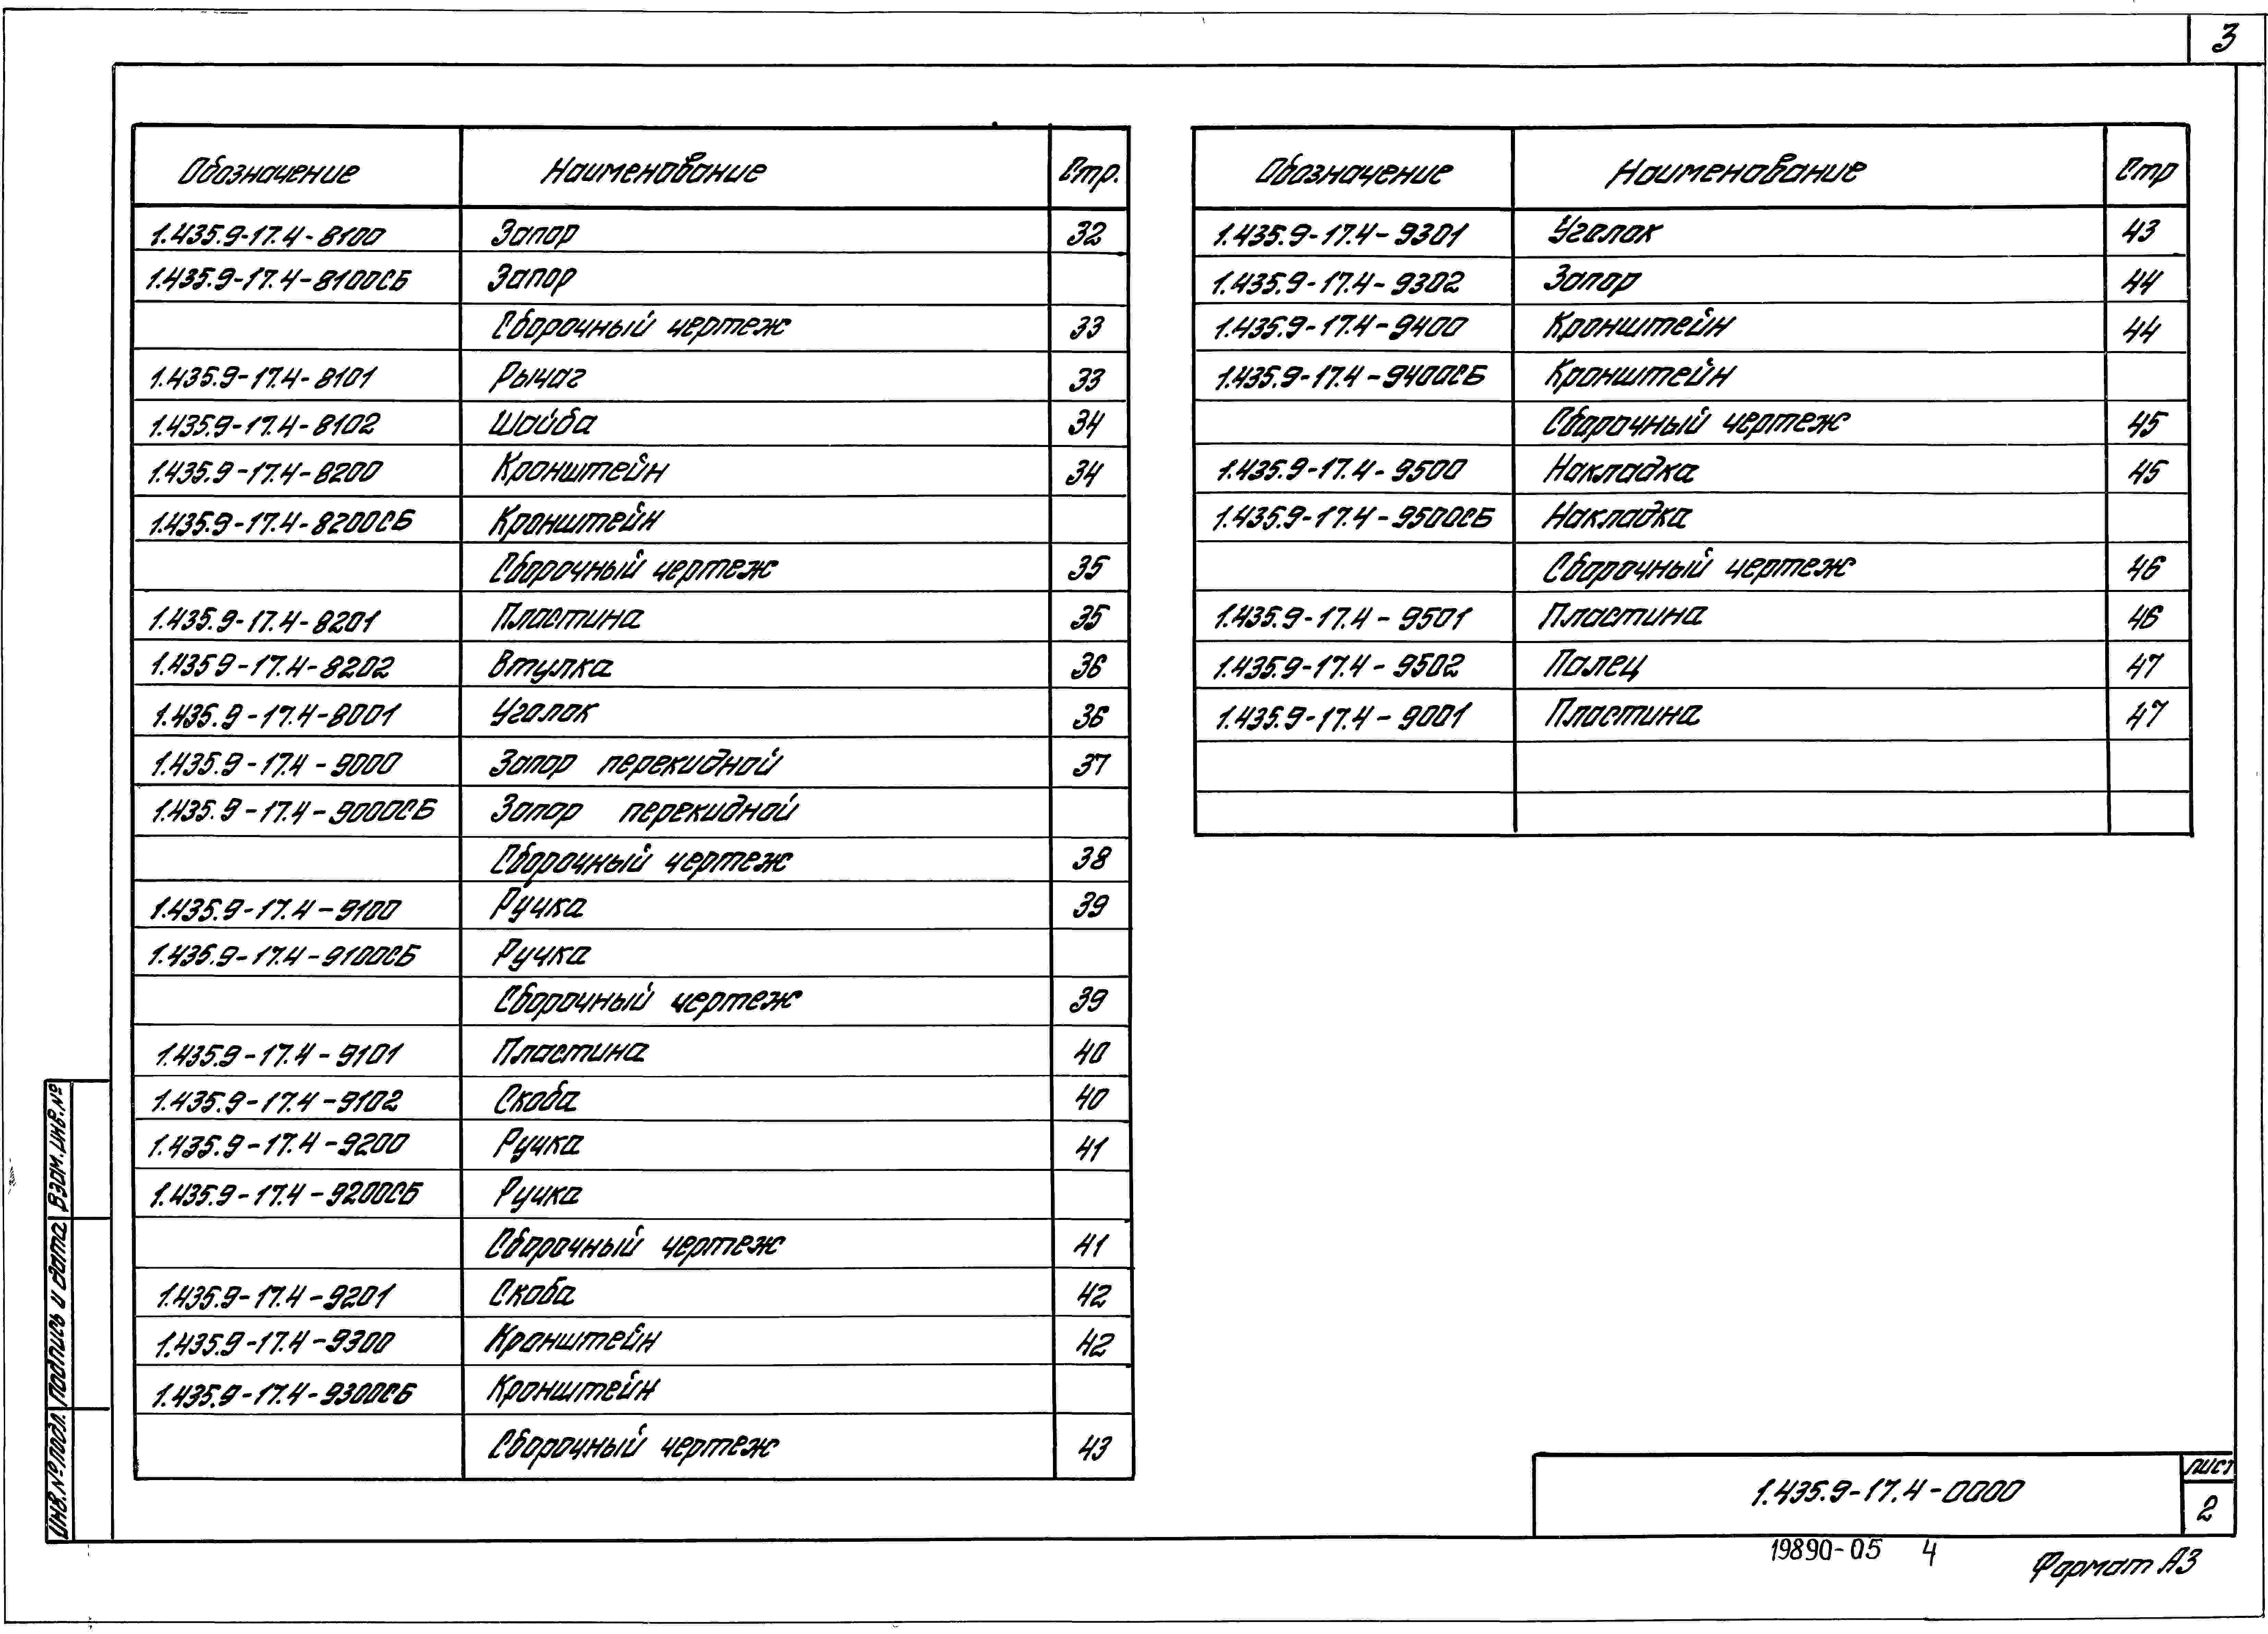 3
Обозначение Наименование Стр.
1.435.9-17.4-8100 Запор 32
1.435.9-17.4-8100СБ Запор
Сборочный чертеж 33
1.435.9-17.4-8101 Рычаг 33
1.435.9-17.4-8102 Шайба 34
1.435.9-17.4-8200 Кронштейн 34
1.435.9-17.4-8200СБ Кронштейн
Сборочный чертеж 35
1.435.9-17.4-8201 Пластина 35
1.435 9-17.4-8202 Втулка 36
1.435.9-17.4-8001 Уголок 36
1.435.9-17.4-9000 Запор перекидной 37
1.435.9-17.4-9000СБ Запор перекидной
Сборочный чертеж 38
1.435.9-17.4-9100 Ручка 39
1.435.9-17.4-9100СБ Ручка
Сборочный чертеж 39
1.435.9-17.4-9101 Пластина 40
1.435.9-17.4-9102 Скоба 40
1.435.9-17.4-9200 Ручка 41
1.435.9-17.4-9200СБ Ручка
Сборочный чертеж 41
1.435.9-17.4-9201 Скоба 42
1.435.9-17.4-9300 Кронштейн 42
1.435.9-17.4-9300СБ Кронштейн
Сборочный чертеж 43
Обозначение Наименование Стр
1.435.9-17.4-9301 Уголок 43
1.435.9-17.4-9302 Запор 44
1.435.9-17.4-9400 Кронштейн 44
1.435.9-17.4-9400СБ Кронштейн
Сборочный чертеж 45
1.435.9-17.4-9500 Накладка 45
1.435.9-17.4-9500СБ Накладка
Сборочный чертеж 46
1.435.9-17.4-9501 Пластина 46
1.435.9-17.4-9502 Палец 47
1.435.9-17.4-9001 Пластина 47
Инв.№подл. Подпись и дата Взам.инв.№
1.435.9-17.4-0000
лист
2
19890-05 4
Формат А3